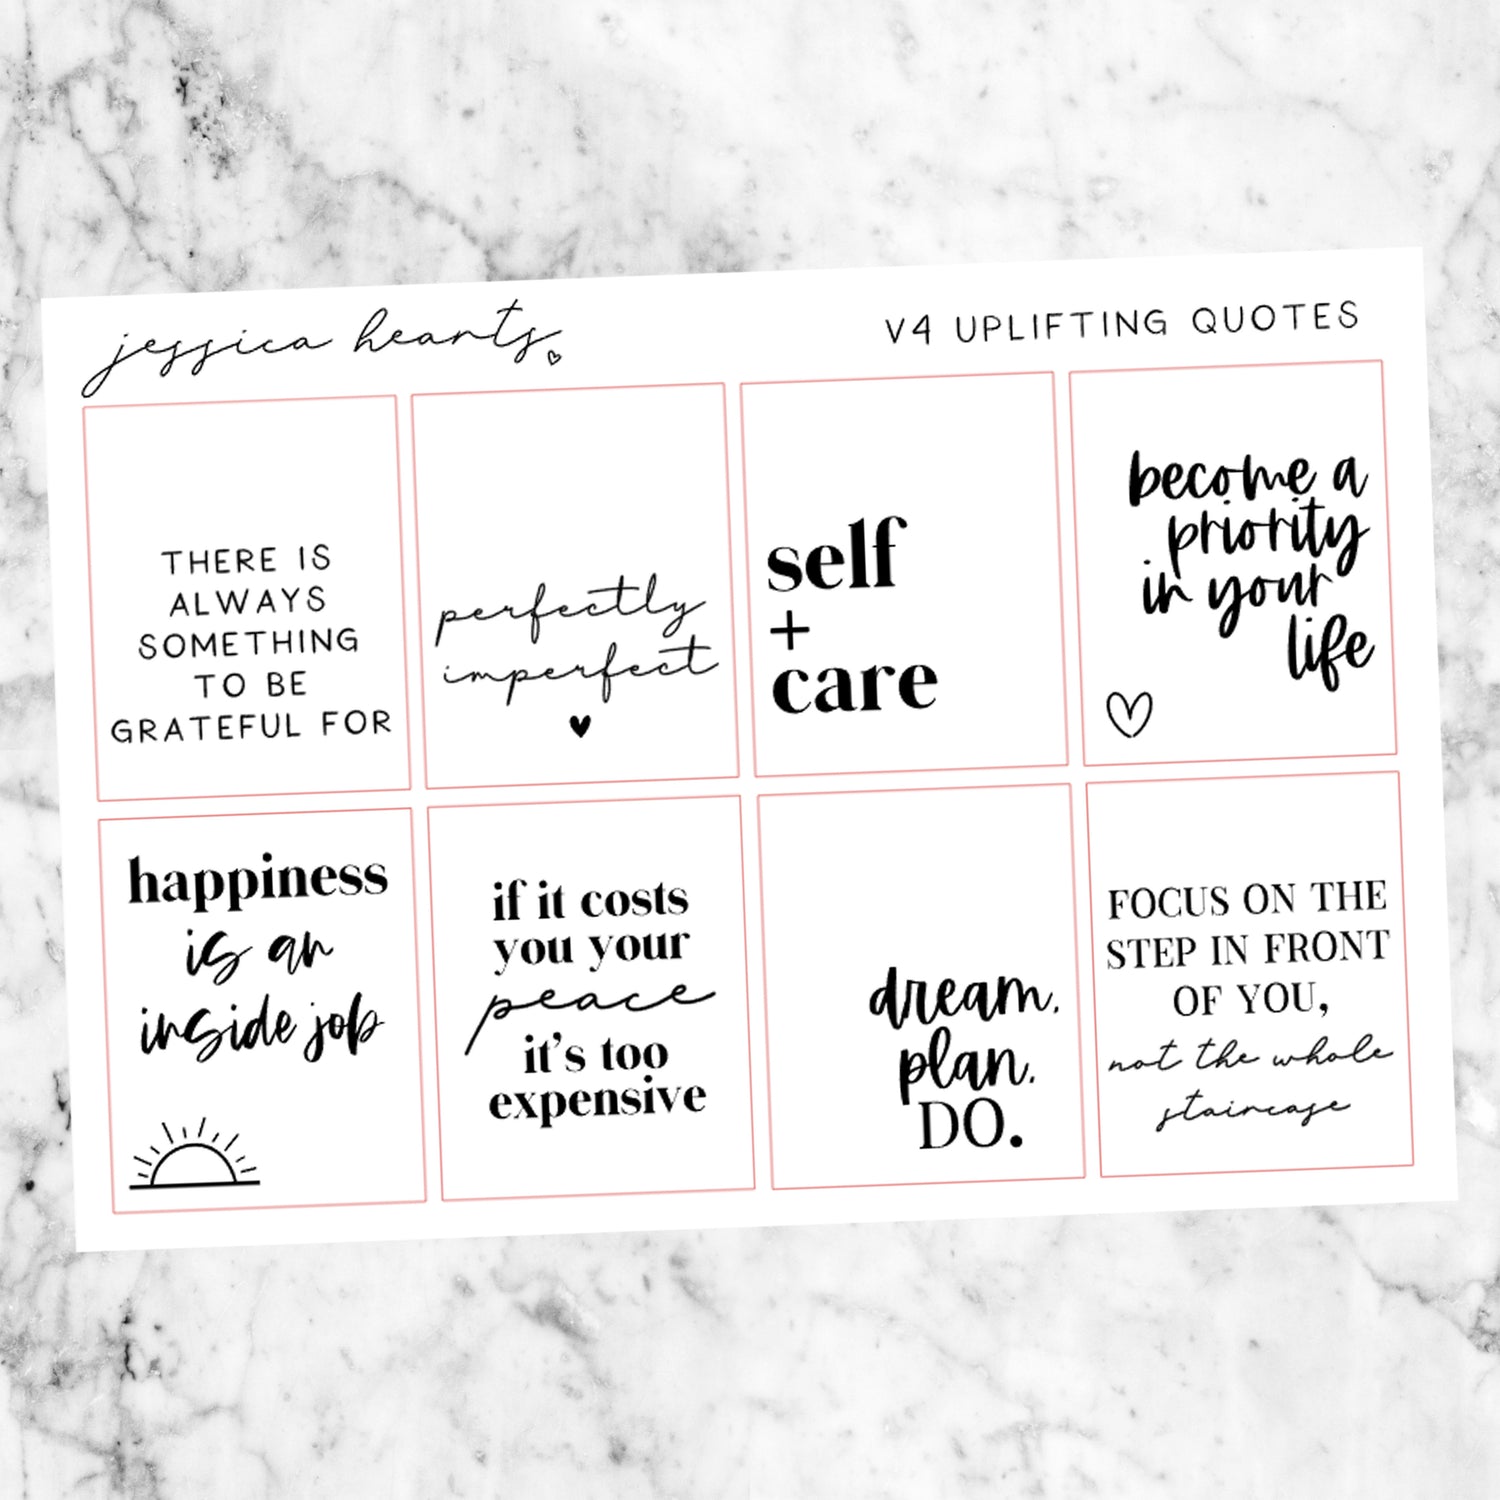 jessica hearts
V4 UPLIFTING QUOTES
THERE IS
ALWAYS
SOMETHING
TO BE
GRATEFUL FOR
perfectly
imperfect
self
+
care
become a
priority
in your
life
happiness
is an
inside job
if it costs
you your
peace
it's too
expensive
dream.
plan.
DO.
FOCUS ON THE
STEP IN FRONT
OF YOU,
not the whole
staircase